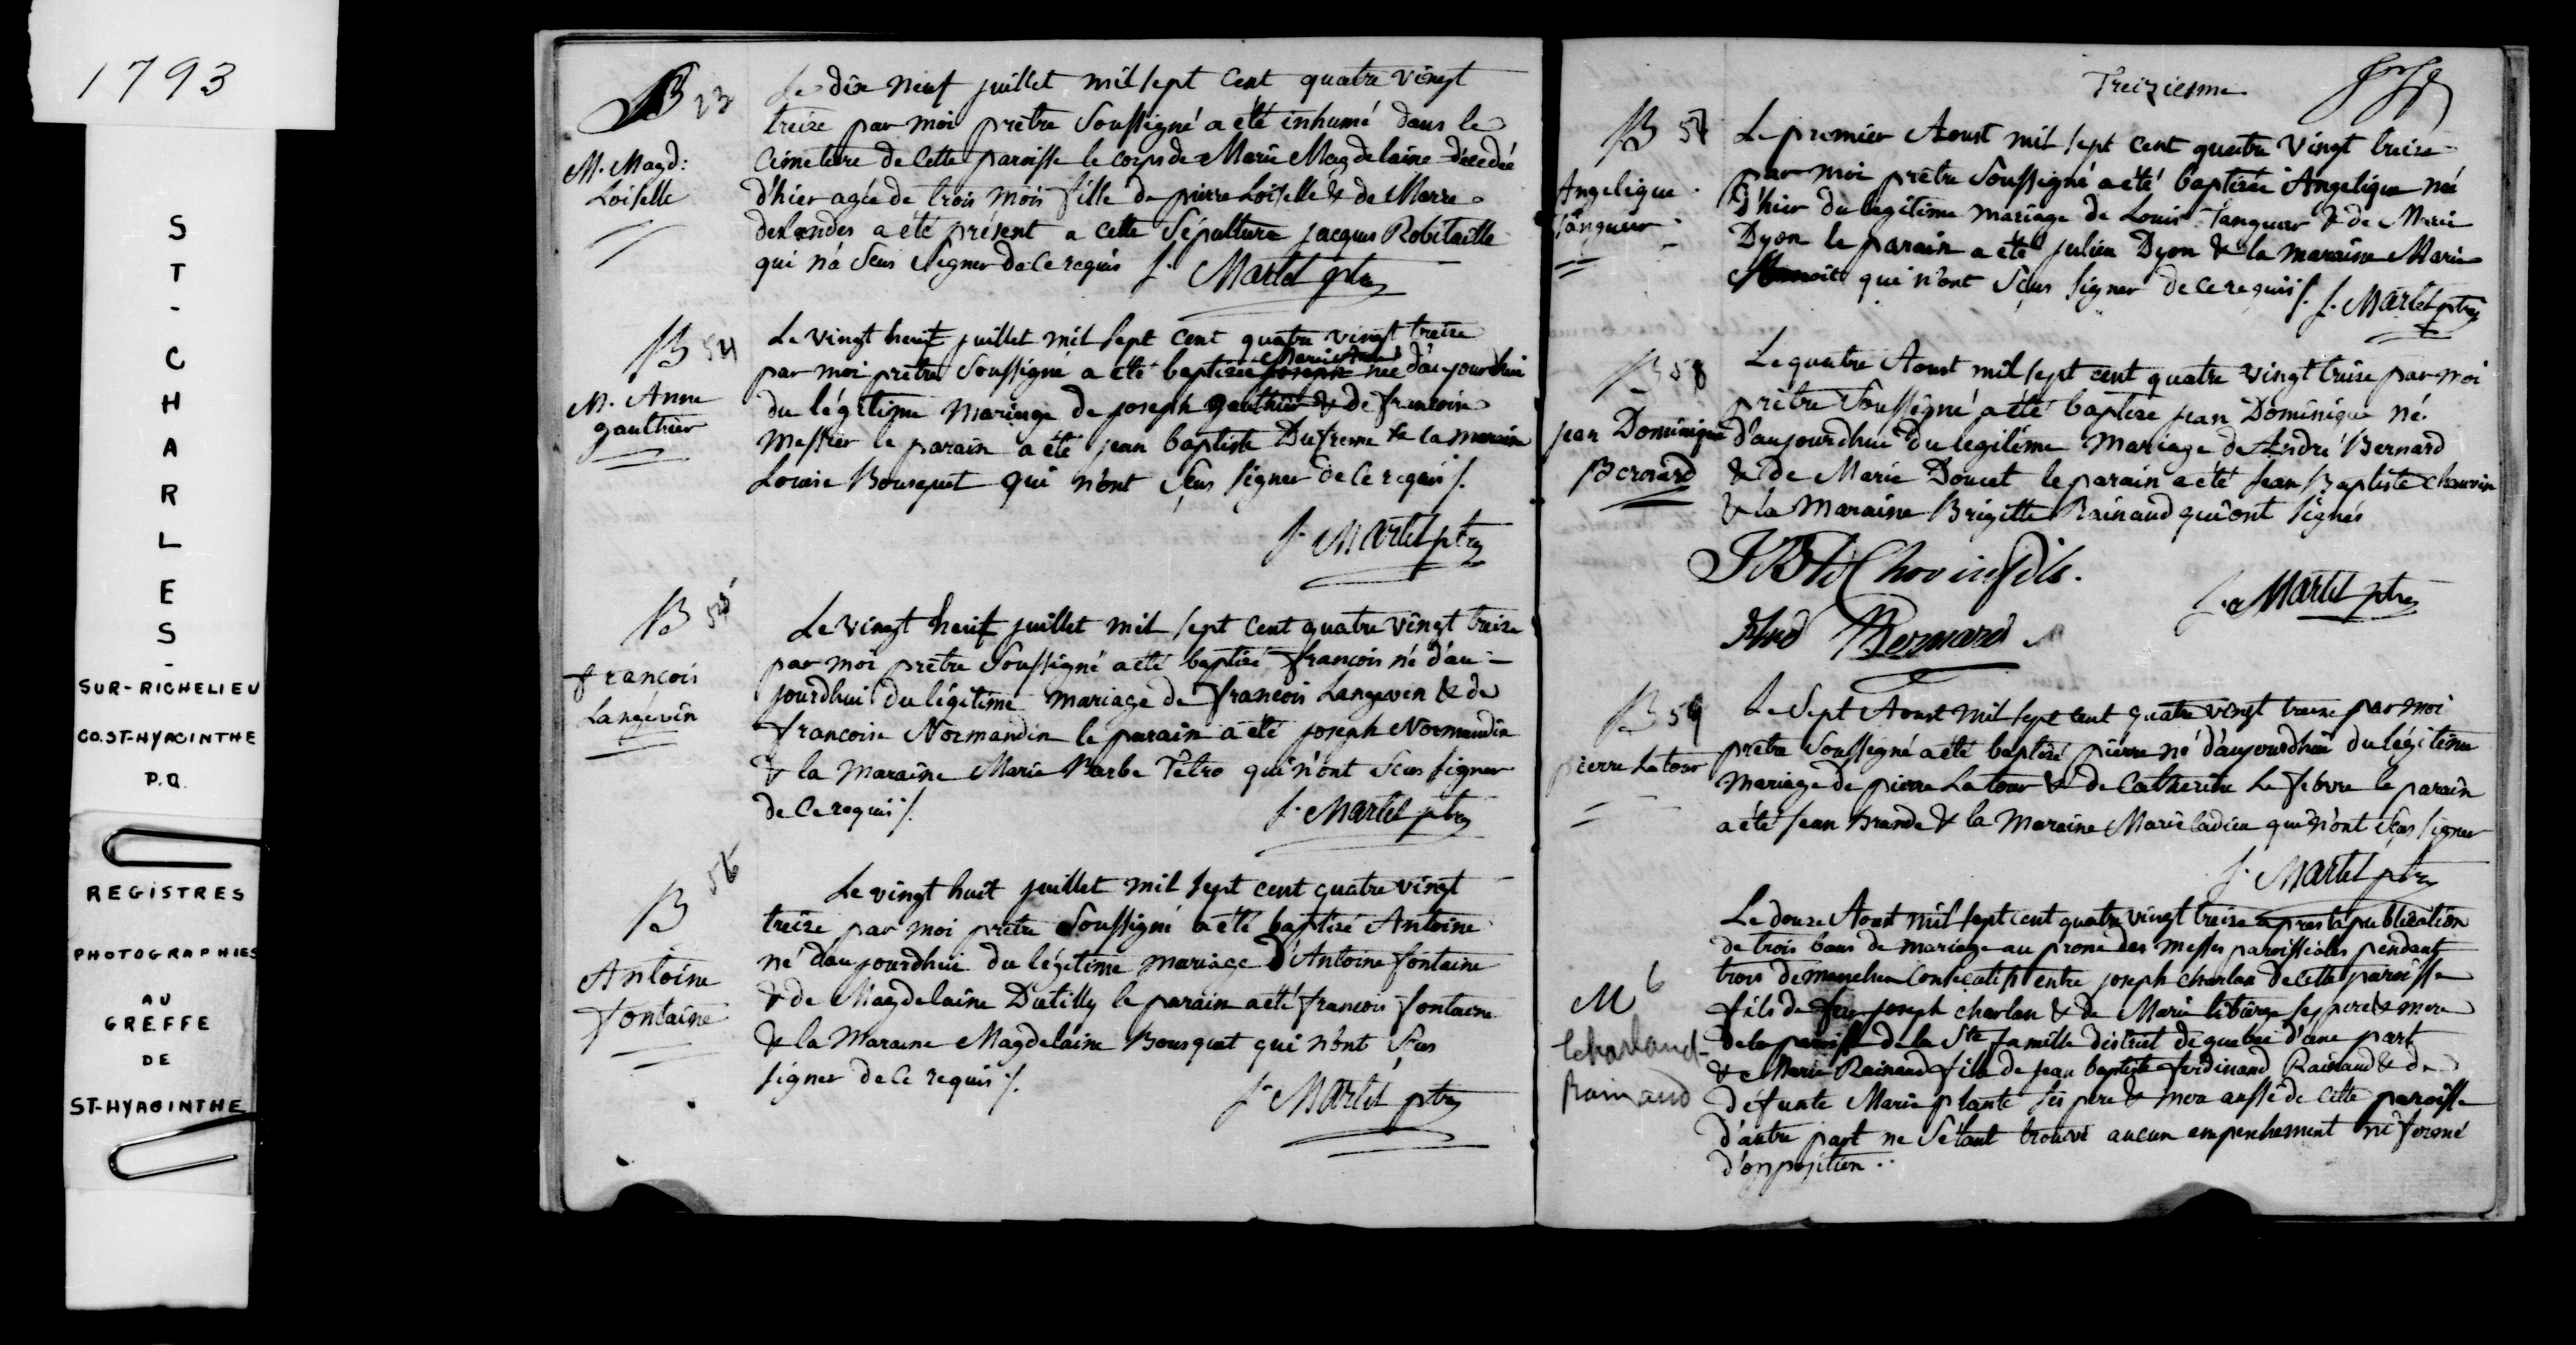 1793
ST-CHARLES-
SUR-RICHELIEU
CO. ST-HYACINTHE
P.Q.
REGISTRES
PHOTOGRAPHIES
AU
GREFFE
DE
ST-HYACINTHE
M. Magd:
Loiselle
Le dix neuf juillet mil sept cent quatre vingt
treize par moi prêtre Soussigné a été inhumé dans le
Cimetiere de Cette paroisse le corps de Marie Magdelaine décédée
d'hier agée de trois mois fille de pierre Loiselle & de Marie
deslandes a été présent a cette Sépulture jacques Robitaille
qui n'a Scus Signer de Ce requis J. Martel ptre
B 54
M. Anne
gauthier
Le vingt heuit juillet mil sept cent quatre vingt treize
par moi prêtre Soussigné a été baptisée née d'aujourdhui
du légitime mariage de joseph gauthier & de francoise
Messier le parain a été jean baptiste Dufresne & la maraine
Louise Bousquet qui n'ont Scus signer de Ce requis /.
J. Martel ptre
B 55
francois
Langevin
Le vingt heuit juillet mil sept cent quatre vingt treize
par moi prêtre Soussigné a été baptisé francois né d'au-
jourdhui du légitime mariage de francois Langevin & de
francoise Normandin le parain a été joseph Normandin
& la maraine Marie Barbe Petro qui n'ont Scus signer
de Ce requis /. J. Martel ptre
B 56
Antoine
fontaine
Le vingt huit juillet mil sept cent quatre vingt
treize par moi prêtre Soussigné a été baptisé Antoine
né d'aujourdhui du légitime mariage d'Antoine fontaine
& de Magdelaine Dutilly le parain a été francois fontaine
& la Maraine Magdelaine Bousquet qui n'ont Scus
signer de Ce requis /. J. Martel ptre
Treiziesme
B 57
Angelique
Tanguer
Le premier Aoust mil sept cent quatre vingt treize
par moi prêtre Soussigné a été baptisée Angelique née
d'hier du legitime mariage de Louis Tanguer & de Marie
Dyon le parain a été julien Dyon & la maraine Marie
qui n'ont Scus signer de Ce requis /. J. Martel ptre
B 58
jean Dominique
Bernard
Le quatre Aoust mil sept cent quatre vingt treize par moi
prêtre Soussigné a été baptisé jean Dominique né
d'aujourdhui du legitime mariage de André Bernard
& de Marie Doucet le parain a été Jean Baptiste Chauvin
& la maraine Brigitte Rainaud qui ont signés
Chovin fils.
J. Martel ptre
And Bernard
B 59
pierre Latour
Le Sept Aoust mil sept cent quatre vingt treize par moi
prêtre Soussigné a été baptisé pierre né d'aujourdhui du légitime
mariage de pierre Latour & de Catherine Le febvre le parain
a été Jean Brande & la Maraine Marie ladieu qui n'ont Scus signer
J. Martel ptre
M 6
Charland
Rainaud
Le douze Aoust mil sept cent quatre vingt treize apres la publication
de trois bans de mariage au prone des messes paroissiales pendant
trois dimanches Consecutifs entre joseph charlan de Cette paroisse
fils de feu joseph charlan & de Marie ses pere & mere
de la paroisse de la Ste famille district de quebec d'une part
& Marie Rainaud fille de jean baptiste ferdinand Rainaud & de
défunte Marie plante ses pere & mere aussi de Cette paroisse
d'autre part ne s'étant trouvé aucun empechement ni formé
d'opposition.